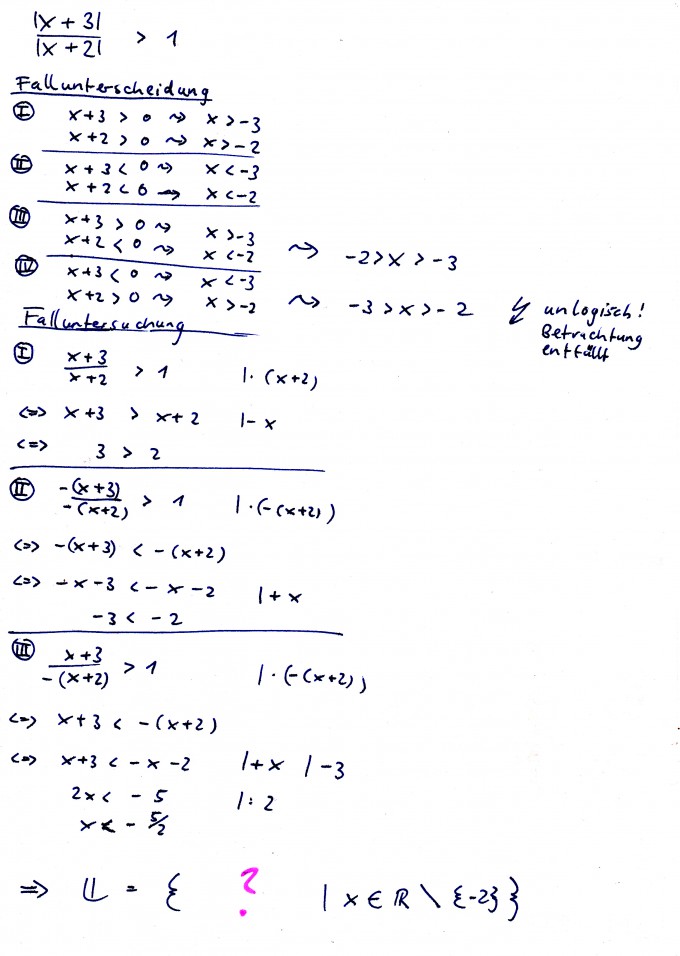 |x + 3| / |x + 2| > 1
Fallunterscheidung
Ⓘ x+3 > 0 ⇝ x > -3
x+2 > 0 ⇝ x > -2
Ⓘⓘ x+3 < 0 ⇝ x < -3
x+2 < 0 ⇝ x < -2
Ⓘⓘⓘ x+3 > 0 ⇝ x > -3
x+2 < 0 ⇝ x < -2 ⇝ -2 > x > -3
ⒾⓋ x+3 < 0 ⇝ x < -3
x+2 > 0 ⇝ x > -2 ⇝ -3 > x > -2 ↯ unlogisch!
Betrachtung
entfällt
Falluntersuchung
Ⓘ (x+3)/(x+2) > 1 |· (x+2)
<=> x+3 > x+2 |- x
<=> 3 > 2
Ⓘⓘ -(x+3) / -(x+2) > 1 |·(-(x+2))
<=> -(x+3) < -(x+2)
<=> -x-3 < -x-2 |+x
-3 < -2
Ⓘⓘⓘ x+3 / -(x+2) > 1 |·(-(x+2))
<=> x+3 < -(x+2)
<=> x+3 < -x-2 |+x |-3
2x < -5 |:2
x < -5/2
=> 𝕃 = { ? | x ∈ ℝ \ {-2}}